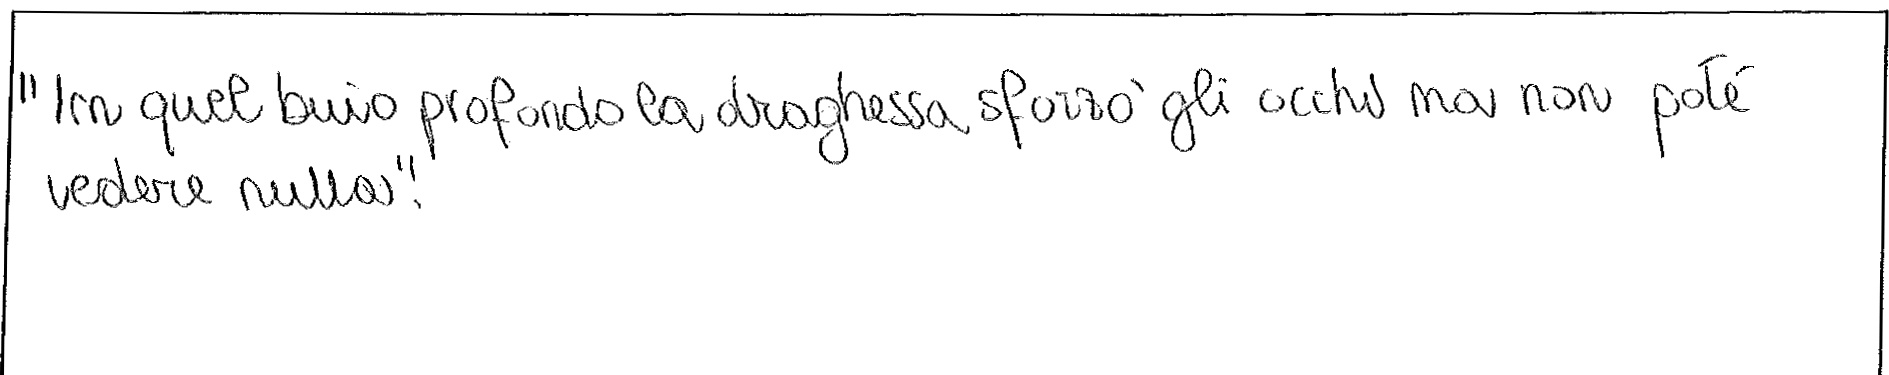 "In quel buio profondo la draghessa sforzò gli occhi ma non poté
vedere nulla".